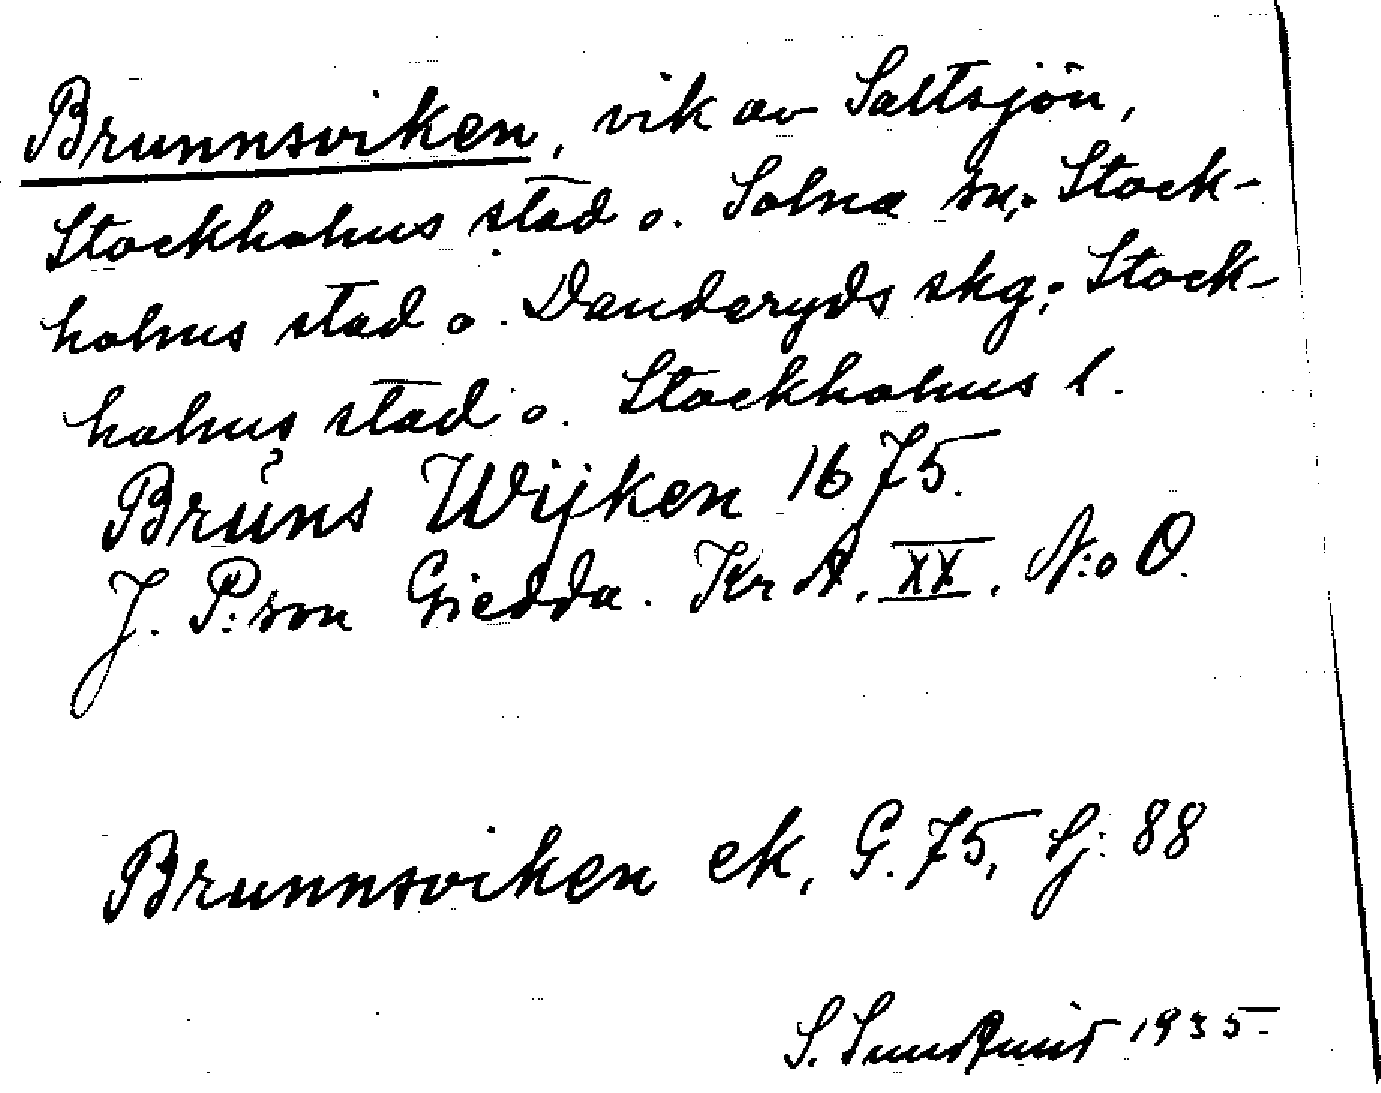 Brunnsviken, vik av Saltsjön,
Stockholms stad o. Solna sn; Stock-
holms stad o. Danderyds skg; Stock-
holms stad o. Stockholms l.
Brůns Wijken 1675.
J. P:son Giedda. Kr A. XX. N:o O.
Brunnsviken ek. G. 75, Sj: 88
S. Sundquist 1935